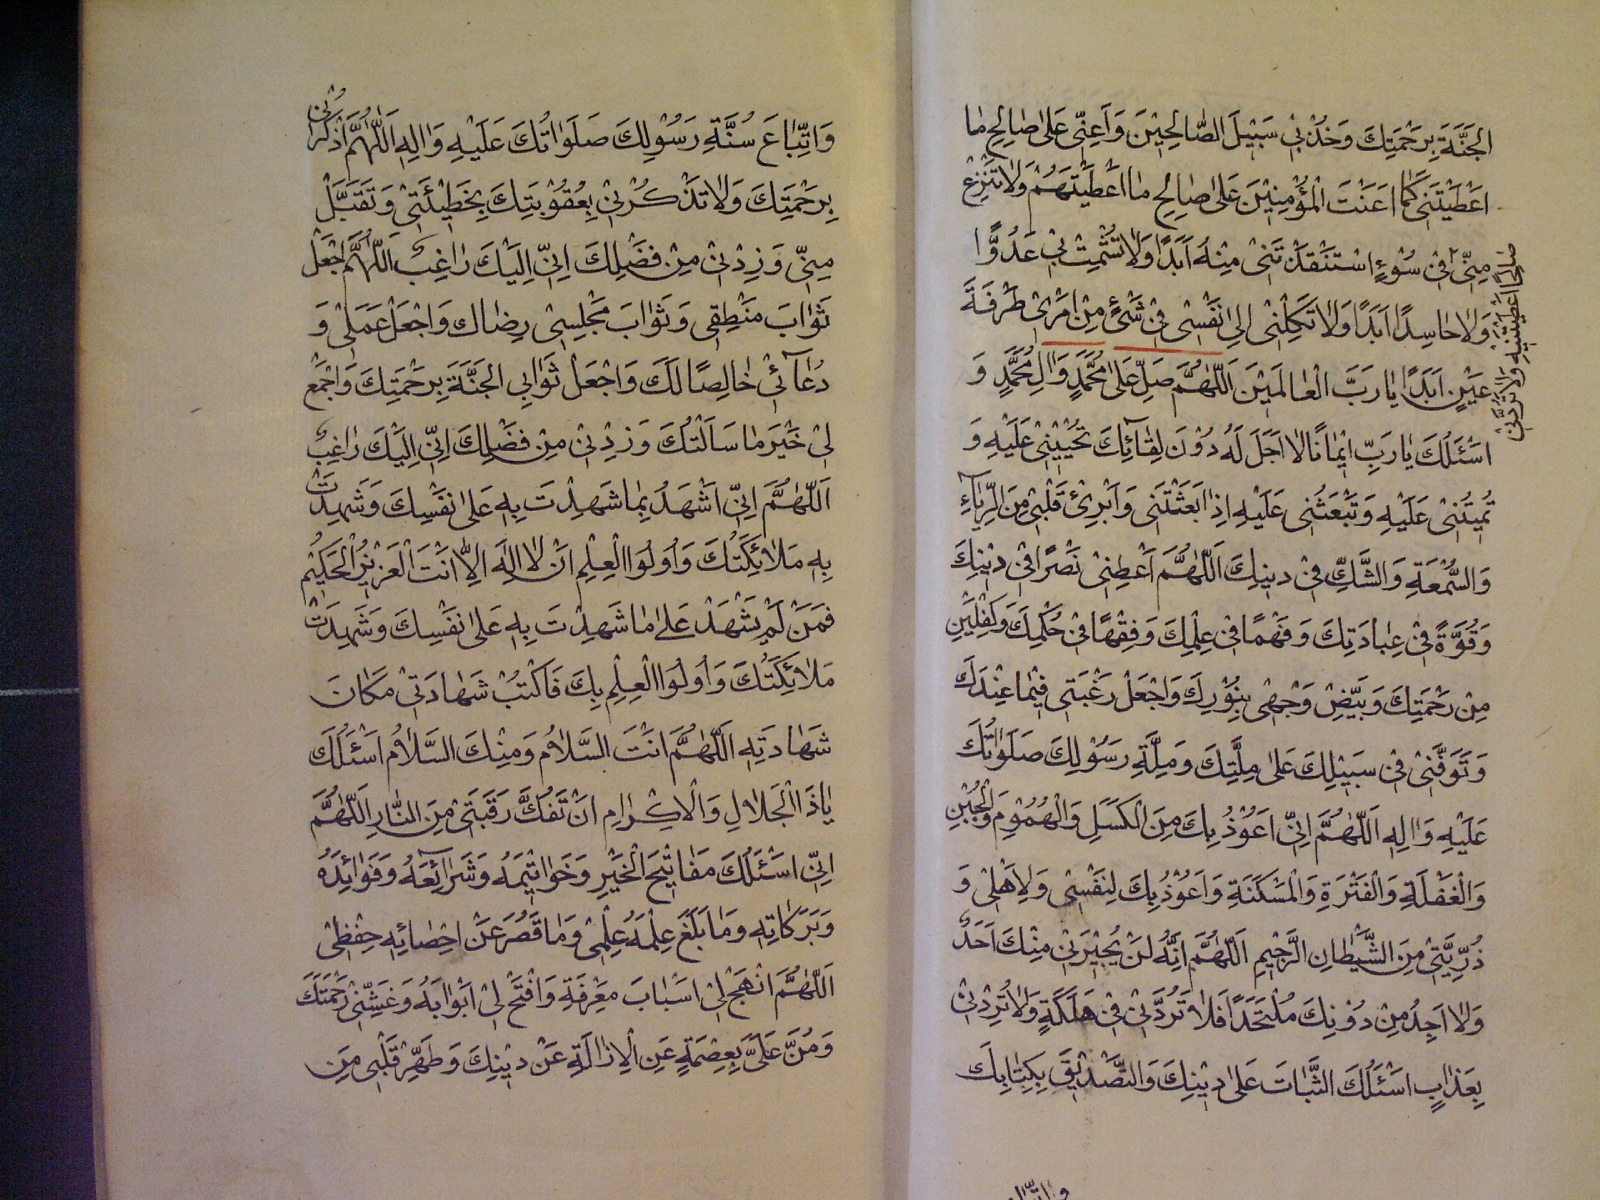 الْجَنَّةَ بِرَحْمَتِكَ وَخُذْ بِي سَبِيْلَ الصَّالِحِيْنَ وَاَعِنِّي عَلىٰ صٰالِحِ مٰا
اَعْطَيْتَنِي كَمٰا اَعَنْتَ الْمُؤْمِنِيْنَ عَلىٰ صٰالِحِ مٰا اَعْطَيْتَهُمْ وَلاٰ تَنْزِعْ
مِنِّي
فِيْ سُوْءٍ اسْتَنْقَذْتَنِي مِنْهُ اَبَدًا وَلاٰ تُشْمِتْ بِي عَدُوًّا
وَلاٰ حٰاسِدًا اَبَدًا وَلاٰ تَكِلْنِي اِلىٰ نَفْسِي فِيْ شَيْءٍ مِنْ اَمْرِيْ طَرْفَةَ
عَيْنٍ اَبَدًا يٰا رَبَّ الْعٰالَمِيْنَ اَللّٰهُمَّ صَلِّ عَلىٰ مُحَمَّدٍ وَاٰلِ مُحَمَّدٍ وَ
اَسْئَلُكَ يٰا رَبِّ اِيْمٰانًا لاٰ اَجَلَ لَهُ دُوْنَ لِقٰائِكَ تُحْيِيْنِيْ عَلَيْهِ وَ
تُمِيْتُنِيْ عَلَيْهِ وَتَبْعَثُنِي عَلَيْهِ اِذٰا بَعَثْتَنَي وَاَبْرِئْ قَلْبِي مِنَ الرِّيٰآءِ
وَالسُّمْعَةِ وَالشَّكِّ فِيْ دِيْنِكَ اَللّٰهُمَّ اَعْطِنِيْ نَصْرًا فِيْ دِيْنِكَ
وَقُوَّةً فِيْ عِبٰادَتِكَ وَفَهْمًا فِيْ عِلْمِكَ وَفِقْهًا فِيْ حُكْمِكَ وَكِفْلَيْنِ
مِنْ رَحْمَتِكَ وَبَيِّضْ وَجْهِي بِنُوْرِكَ وَاجْعَلْ رَغْبَتِي فِيْمٰا عِنْدَكَ
وَتَوَفَّنِيْ فِيْ سَبِيْلِكَ عَلىٰ مِلَّتِكَ وَمِلَّةِ رَسُوْلِكَ صَلَوٰاتُكَ
عَلَيْهِ وَاٰلِهِ اَللّٰهُمَّ اِنِّي اَعُوْذُ بِكَ مِنَ الْكَسَلِ وَالْهُمُوْمِ وَالْجُبْنِ
وَالْغَفْلَةِ وَالْفَتْرَةِ وَالْمَسْكَنَةِ وَاَعُوْذُ بِكَ لِنَفْسِيْ وَلِاَهْلِيْ وَ
ذُرِّيَّتِيْ مِنَ الشَّيْطٰانِ الرَّجِيْمِ اَللّٰهُمَّ اِنَّهُ لَنْ يُجِيْرَنِيْ مِنْكَ اَحَدٌ
وَلاٰ اَجِدُ مِنْ دُوْنِكَ مُلْتَحَدًا فَلاٰ تَرُدَّنِيْ فِيْ هَلَكَةٍ وَلاٰ تُرِدْنِيْ
بِعَذٰابٍ اَسْئَلُكَ الثَّبٰاتَ عَلىٰ دِيْنِكَ وَالتَّصْدِيْقَ بِكِتٰابِكَ
صٰالِحًا اَعْطَيْتَنِيْهِ وَلاٰ تَرُدَّنِيْ
وَاتِّبٰاعَ سُنَّةِ رَسُوْلِكَ صَلَوٰاتُكَ عَلَيْهِ وَاٰلِهِ اَللّٰهُمَّ اذْكُرْنِيْ
بِرَحْمَتِكَ وَلاٰ تَذْكُرْنِيْ بِعُقُوْبَتِكَ بِخَطِيْئَتِيْ وَتَقَبَّلْ
مِنِّي وَزِدْنِيْ مِنْ فَضْلِكَ اِنِّي اِلَيْكَ رٰاغِبٌ اَللّٰهُمَّ اجْعَلْ
ثَوٰابَ مَنْطِقِي وَثَوٰابَ مَجْلِسِيْ رِضٰاكَ وَاجْعَلْ عَمَلِيْ وَ
دُعٰآئِيْ خٰالِصًا لَكَ وَاجْعَلْ ثَوٰابِي الْجَنَّةَ بِرَحْمَتِكَ وَاجْمَعْ
لِيْ خَيْرَ مٰا سَاَلْتُكَ وَزِدْنِيْ مِنْ فَضْلِكَ اِنِّي اِلَيْكَ رٰاغِبٌ
اَللّٰهُمَّ اِنِّي اَشْهَدُ بِمٰا شَهِدْتَ بِهِ عَلىٰ نَفْسِكَ وَشَهِدَتْ
بِهِ مَلاٰئِكَتُكَ وَاُولُوا الْعِلْمِ اَنْ لاٰ اِلٰهَ اِلاّٰ اَنْتَ الْعَزِيْزُ الْحَكِيْمُ
فَمَنْ لَمْ يَشْهَدْ عَلىٰ مٰا شَهِدْتَ بِهِ عَلىٰ نَفْسِكَ وَشَهِدَتْ
مَلاٰئِكَتُكَ وَاُولُوا الْعِلْمِ بِكَ فَاكْتُبْ شَهٰادَتِيْ مَكٰانَ
شَهٰادَتِهِ اَللّٰهُمَّ اَنْتَ السَّلاٰمُ وَمِنْكَ السَّلاٰمُ اَسْئَلُكَ
يٰا ذَا الْجَلاٰلِ وَالْاِكْرٰامِ اَنْ تَفُكَّ رَقَبَتِيْ مِنَ النّٰارِ اَللّٰهُمَّ
اِنِّي اَسْئَلُكَ مَفٰاتِيْحَ الْخَيْرِ وَخَوٰاتِيْمَهُ وَشَرٰآئِعَهُ وَفَوٰائِدَهُ
وَبَرَكٰاتِهِ وَمٰا بَلَغَ عِلْمَهُ عِلْمِيْ وَمٰا قَصُرَ عَنْ اِحْصٰائِهِ حِفْظِيْ
اَللّٰهُمَّ انْهَجْ لِيْ اَسْبٰابَ مَعْرِفَةِ وَافْتَحْ لِيْ اَبْوٰابَهُ وَغَشِّنِيْ رَحْمَتَكَ
وَمُنَّ عَلَيَّ بِعِصْمَةٍ عَنِ الْاِزٰالَةِ عَنْ دِيْنِكَ وَطَهِّرْ قَلْبِي مِنَ